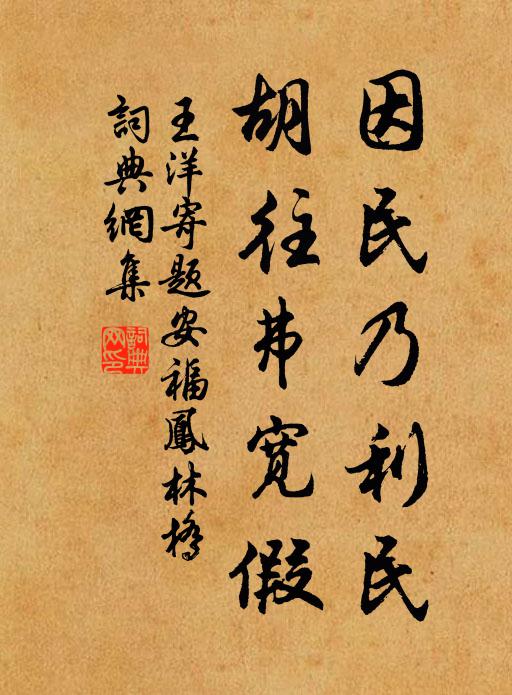 因民乃利民
胡往弗寬假
王洋寄题安福鳳林橋
詞典網集
詞典網印